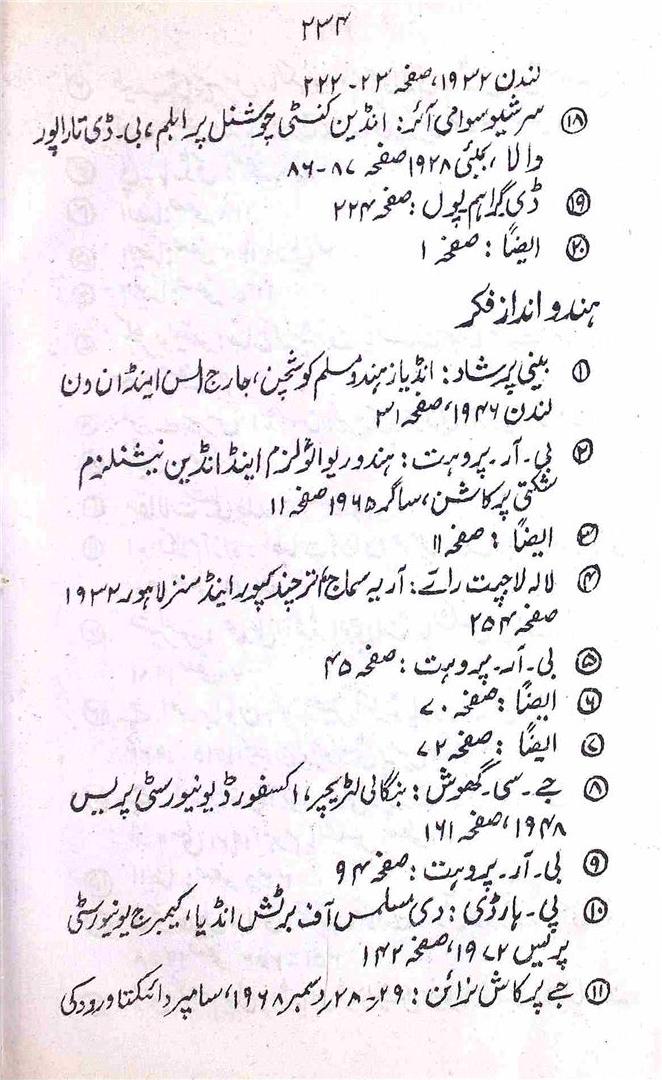 ۲۳۴
لندن ۱۹۳۲، صفحہ ۲۳-۲۲۲
⑱ سر شیوسوامی آئر: انڈین کنسٹی چوشنل پرابلم، بی۔ڈی تاراپور
والا، بمبئی ۱۹۲۸ صفحہ ۸۷-۸۶
⑲ ڈی گراہم پول: صفحہ ۲۲۴
⑳ ایضاً: صفحہ ۱
ہندو انداز فکر
① بینی پرشاد: انڈیاز ہندو مسلم کوسچن، جارج الس اینڈ ان ون
لندن ۱۹۴۶، صفحہ ۳۱
② بی۔آر۔پروہت: ہندو ریوائولزم اینڈ انڈین نیشنلزم
شکتی پرکاشن، ساگر ۱۹۶۵ صفحہ ۱۱
③ ایضاً: صفحہ ۱۱
④ لالہ لاجپت رائے: آریہ سماج اُتر چند کپور اینڈ سنز لاہور ۱۹۳۲
صفحہ ۲۵۴
⑤ بی۔آر۔پروہت: صفحہ ۴۵
⑥ ایضاً: صفحہ ۷۰
⑦ ایضاً: صفحہ ۷۲
⑧ جے۔سی۔گھوش: بنگالی لٹریچر، اکسفورڈ یونیورسٹی پریس
۱۹۴۸، صفحہ ۱۶۱
⑨ بی۔آر۔پروہت: صفحہ ۹۴
⑩ پی۔ہارڈی: دی مسلمس آف برٹش انڈیا، کیمبرج یونیورسٹی
پریس ۱۹۷۲، صفحہ ۱۴۲
⑪ جے پرکاش نرائن: ۲۹-۲۸ دسمبر ۱۹۶۸، سامپردائکتا ورودکی